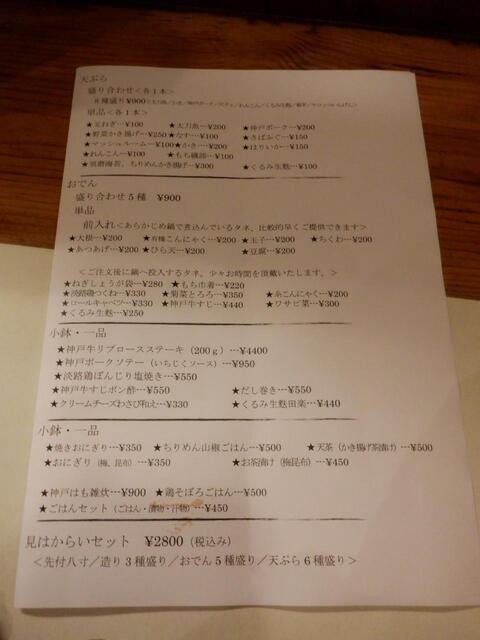 天ぷら
盛り合わせ＜各1本＞
8種盛り¥900
単品＜各1本＞
★玉ねぎ…¥100 ★太刀魚…¥200 ★神戸ポーク…¥200
★野菜かき揚げ…¥250 ★なす…¥100 ★さばふぐ…¥150
★マッシュルーム…¥100 ★かき…¥200 ★はりいか…¥150
★れんこん…¥100 ★もち磯部…¥100
★須磨海苔、ちりめんかき揚げ…¥300 ★くるみ生麩…¥100
おでん
盛り合わせ5種 ¥900
単品
前入れ＜あらかじめ鍋で煮込んでいるタネ、比較的早くご提供できます＞
★大根…¥200 ★有機こんにゃく…¥200 ★玉子…¥200 ★ちくわ…¥200
★あつあげ…¥200 ★ひら天…¥200 ★豆腐…¥200
＜ご注文後に鍋へ投入するタネ。少々お時間を頂戴いたします。＞
★ねぎしょうが袋…¥280 ★もち巾着…¥220
★淡路鶏つくね…¥330 ★菊菜とろろ…¥350 ★糸こんにゃく…¥200
★ロールキャベツ…¥330 ★神戸牛すじ…¥440 ★ワサビ菜…¥300
★くるみ生麩…¥250
小鉢・一品
★神戸牛リブロースステーキ（200g）…¥4400
★神戸ポークソテー（いちじくソース）…¥950
★淡路鶏ぼんじり塩焼き…¥550
★神戸牛すじポン酢…¥550 ★だし巻き…¥550
★クリームチーズわさび和え…¥330 ★くるみ生麩田楽…¥440
小鉢・一品
★焼きおにぎり…¥350 ★ちりめん山椒ごはん…¥500 ★天茶（かき揚げ茶漬け）…¥500
★おにぎり（梅、昆布）…¥350 ★お茶漬け（梅昆布）…¥450
★神戸はも雑炊…¥900 ★鶏そぼろごはん…¥500
★ごはんセット（ごはん・漬物・汁物）…¥450
見はからいセット ¥2800（税込み）
＜先付八寸／造り3種盛り／おでん5種盛り／天ぷら6種盛り＞